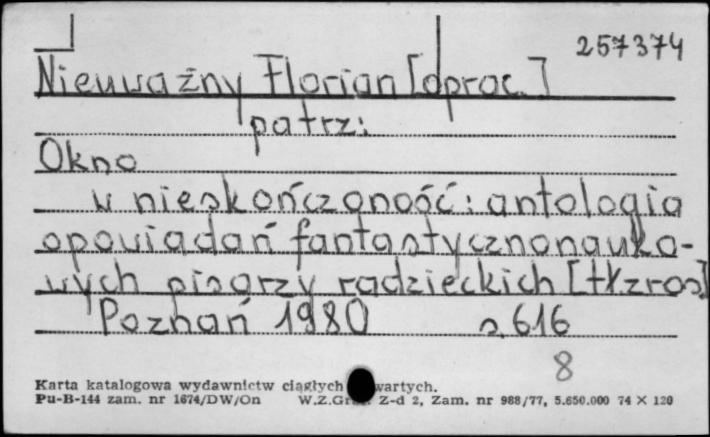 257374
Nieuważny Florian [oprac.]
patrz:
Okno
w nieskończoność: antologia
opowiadań fantastycznonauko-
wych pisarzy radzieckich [tł z ros]
Poznań 1980 s. 616
8
Karta katalogowa wydawnictw ciągłych wartych.
Pu-B-144 zam. nr 1674/DW/On W.Z.Graf. Z-d 2, Zam. nr 988/77, 5.650.000 74 X 120